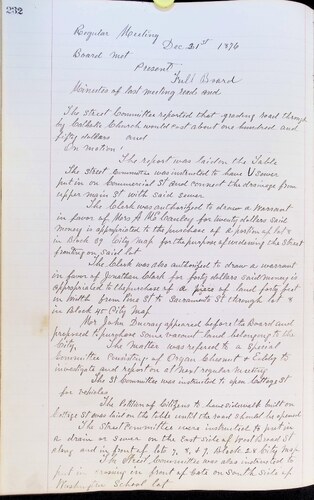 232
Regular Meeting
Dec 21st 1876
Board met
Present
Full Board
Minutes of last meeting read and
The Street Committee reported that grading road through
by Catholic Church would cost about one hundred and
fifty dollars and
On motion
The report was laid on the Table
The street committee was instructed to have sewer
put in on Commercial St and connect the drainage from
upper main St with said sewer
The Clerk was authorised to draw a warrant
in favor of Mrs A McCauley for twenty dollars said
money is appropriated to the purchase of a portion of lot
in Block 29 City Map for the purpose of widening the street
fronting on said lot
The Clerk was also authorised to draw a warrant
in favor of Jonathan Clark for forty dollars said money is
appropriated to the purchase of a piece of land forty feet
in width from St to Sacramento St through lot
in Block 45 City Map
Mr John appeared before the Board and
proposed to purchase some vacant land belonging to the
City. The matter was referred to a Special
Committee consisting of Organ Chesnut & Eddy to
investigate and report at next regular meeting
The St Committee was instructed to open Cottage St
for vehicles
The Petition of Citizens to have sidewalk built on
Cottage St was laid on the table until the road should be opened
The Street Committee were instructed to put in
a drain or sewer on the East side of West Broad St
along and in front of lots 7, 8 & 9 Block 28 City Map
The Street Committee was also instructed to
put in crossing in front of Gate on South side of
Washington School lot